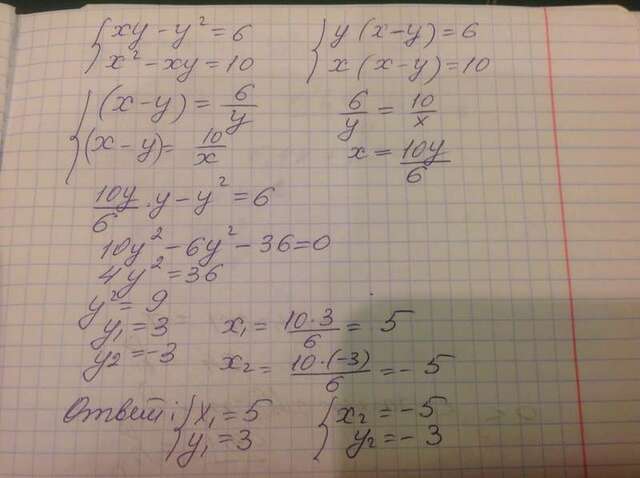 {xy - y² = 6   {y (x-y) = 6
{x² - xy = 10   {x (x-y) = 10
{(x-y) = 6/y   6/y = 10/x
{(x-y) = 10/x   x = 10y/6
10y/6 · y - y² = 6
10y² - 6y² - 36 = 0
4y² = 36
y² = 9
y₁ = 3   x₁ = 10·3/6 = 5
y₂ = -3   x₂ = 10·(-3)/6 = -5
Ответ: {x₁ = 5   {x₂ = -5
{y₁ = 3   {y₂ = -3